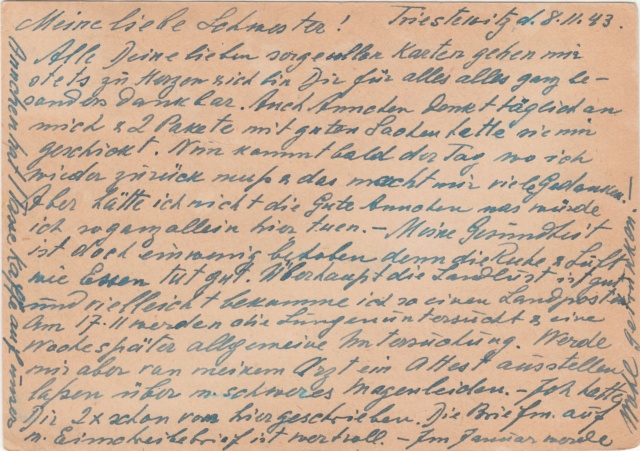 Meine liebe Schwester! Triestewitz d. 8.11.43.
Alle Deine lieben sorgevollen Karten gehen mir
stets zu Herzen & ich bin Dir für alles alles ganz be-
sonders dankbar. Auch Annchen denkt täglich an
mich & 2 Pakete mit guten Sachen hatte sie mir
geschickt. Nun kommt bald der Tag wo ich
wieder zurück muß & das macht mir viele Gedanken.
Aber hätte ich nicht die gute Annchen was würde
ich so ganz allein hier tuen. – Meine Gesundheit
ist doch ein wenig behoben denn die Ruhe & Luft
wie Essen tut gut. Überhaupt die Landluft ist gut
und vielleicht bekomme ich so einen Landposten
Am 17.11 werden die Lungen untersucht & eine
Woche später allgemeine Untersuchung. Werde
mir aber von meinem Arzt ein Attest ausstellen
laßen über m. schweres Magenleiden. – Ich hatte
Dir 2x schon von hier geschrieben. Die Briefm. auf
m. Einschreibebrief ist wertvoll. – Im Januar werde
Annchen hat